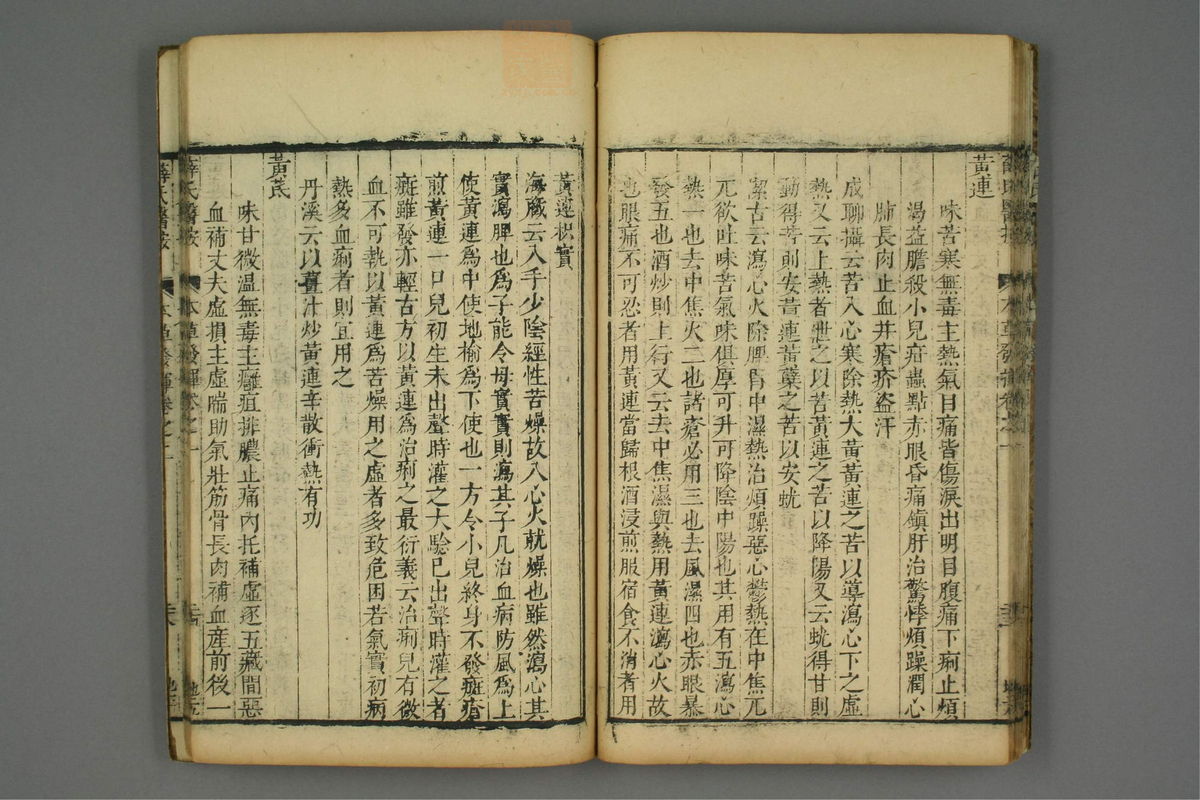 黃連
味苦寒無毒主熱氣目痛眥傷淚出明目腹痛下痢止煩
渴益膽殺小兒疳蟲點赤眼昏痛鎮肝治驚悸煩躁潤心
肺長肉止血并瘡疥盜汗
成聊攝云苦入心寒除熱大黃黃連之苦以導瀉心下之虛
熱又云上熱者泄之以苦黃連之苦以降陽又云蚘得甘則
動得苦則安黃連黃蘗之苦以安蚘
潔古云瀉心火除脾胃中濕熱治煩躁惡心鬱熱在中焦兀
兀欲吐味苦氣味俱厚可升可降陰中陽也其用有五瀉心
熱一也去中焦火二也諸瘡必用三也去風濕四也赤眼暴
發五也酒炒則上行又云去中焦濕與熱用黃連瀉心火故
也眼痛不可忍者用黃連當歸根酒浸煎服宿食不消者用
黃連枳實
海藏云入手少陰經性苦燥故入心火就燥也雖然瀉心其
實瀉脾也為子能令母實實則瀉其子凡治血病防風為上
使黃連為中使地榆為下使也一方令小兒終身不發斑瘡
煎黃連一口兒初生未出聲時灌之大驗已出聲時灌之者
斑雖發亦輕古方以黃連為治痢之最衍義云治痢兒有微
血不可執以黃連為苦燥用之虛者多致危困若氣實初病
熱多血痢者則宜用之
丹溪云以薑汁炒黃連辛散衝熱有功
黃芪
味甘微溫無毒主癰疽排膿止痛內托補虛逐五藏間惡
血補丈夫虛損主虛喘助氣壯筋骨長肉補血產前後一
薛氏醫按
本草發揮卷之一